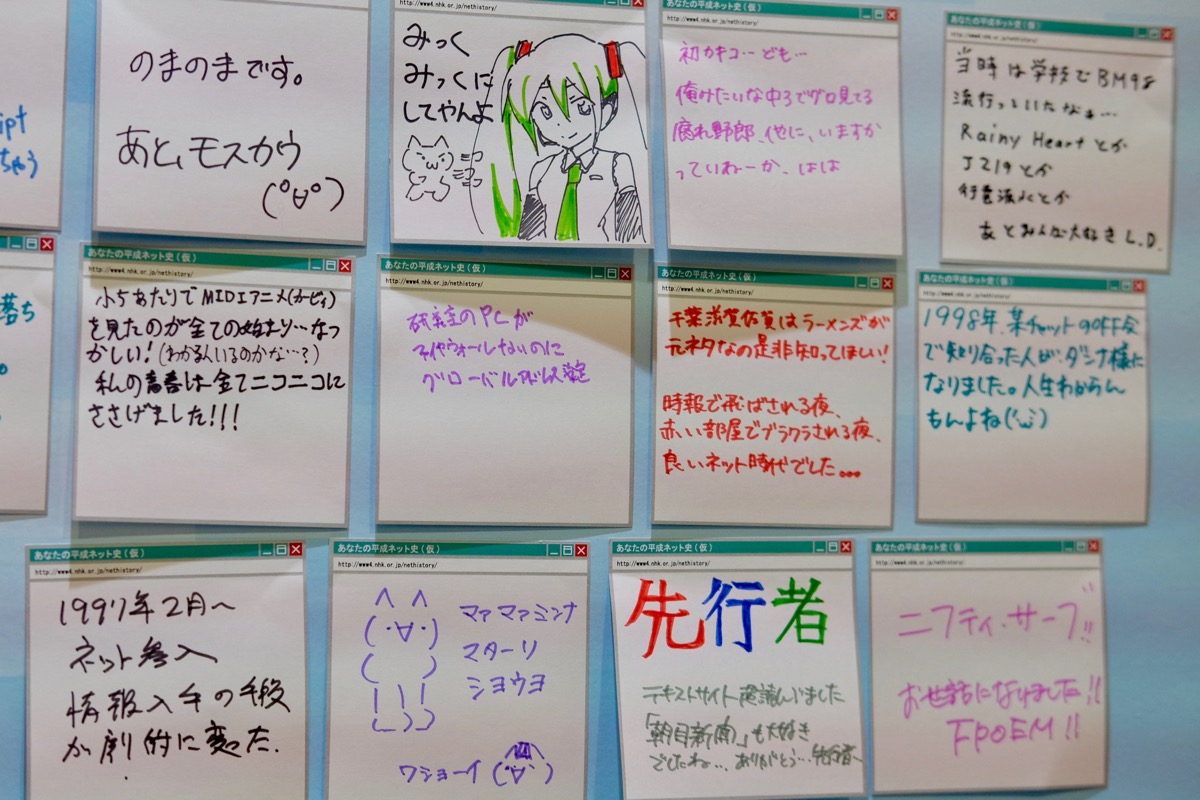 ipt
ちゃう
http://www4.nhk.or.jp/nethistory/
のまのまです。
あと、モスカウ
(°∀°)
http://www4.nhk.or.jp/nethistory/
みっく
みっくに
してやんよ
あなたの平成ネット史(仮)
http://www4.nhk.or.jp/nethistory/
初カキコ…ども…
俺みたいな中3でグロ見てる
腐れ野郎、他に、いますか
っていねーか、はは
あなたの平成ネット史(仮)
http://www4.nhk.or.jp/nethistory/
当時は学校でBM98
流行っていたなぁ…
Rainy Heartとか
J219とか
行雲流水とか
あとみんな大好きL.D.
落ち
あなたの平成ネット史(仮)
http://www4.nhk.or.jp/nethistory/
小5あたりでMIDIアニメ(カービィ)
を見たのが全ての始まり…なつ
かしい!(わかる人いるのかな…?)
私の青春は全てニコニコに
ささげました!!!
あなたの平成ネット史(仮)
http://www4.nhk.or.jp/nethistory/
研究室のPCが
ファイヤウォールないのに
グローバルアドレス設定
あなたの平成ネット史(仮)
http://www4.nhk.or.jp/nethistory/
千葉滋賀佐賀はラーメンズが
元ネタなの是非知ってほしい!
時報で飛ばされる夜、
赤い部屋でブラクラされる夜、
良いネット時代でした…
あなたの平成ネット史(仮)
http://www4.nhk.or.jp/nethistory/
1998年、某チャットのOFF会
で知り合った人が、ダンナ様に
なりました。人生わからん
もんよね('ω')
あなたの平成ネット史(仮)
http://www4.nhk.or.jp/nethistory/
1997年2月~
ネット参入
情報入手の手段
が劇的に変った.
あなたの平成ネット史(仮)
http://www4.nhk.or.jp/nethistory/
∧ ∧
(・∀・)
( )
| | |
マァマァミンナ
マターリ
シヨウヨ
ワショーイ(°∀°)
あなたの平成ネット史(仮)
http://www4.nhk.or.jp/nethistory/
先行者
テキストサイト愛読んでました
「朝目新聞」も大好き
でしたね…ありがとう…先行者~
あなたの平成ネット史(仮)
http://www4.nhk.or.jp/nethistory/
ニフティ・サーブ!!
お世話になりました!!
FPOEM!!